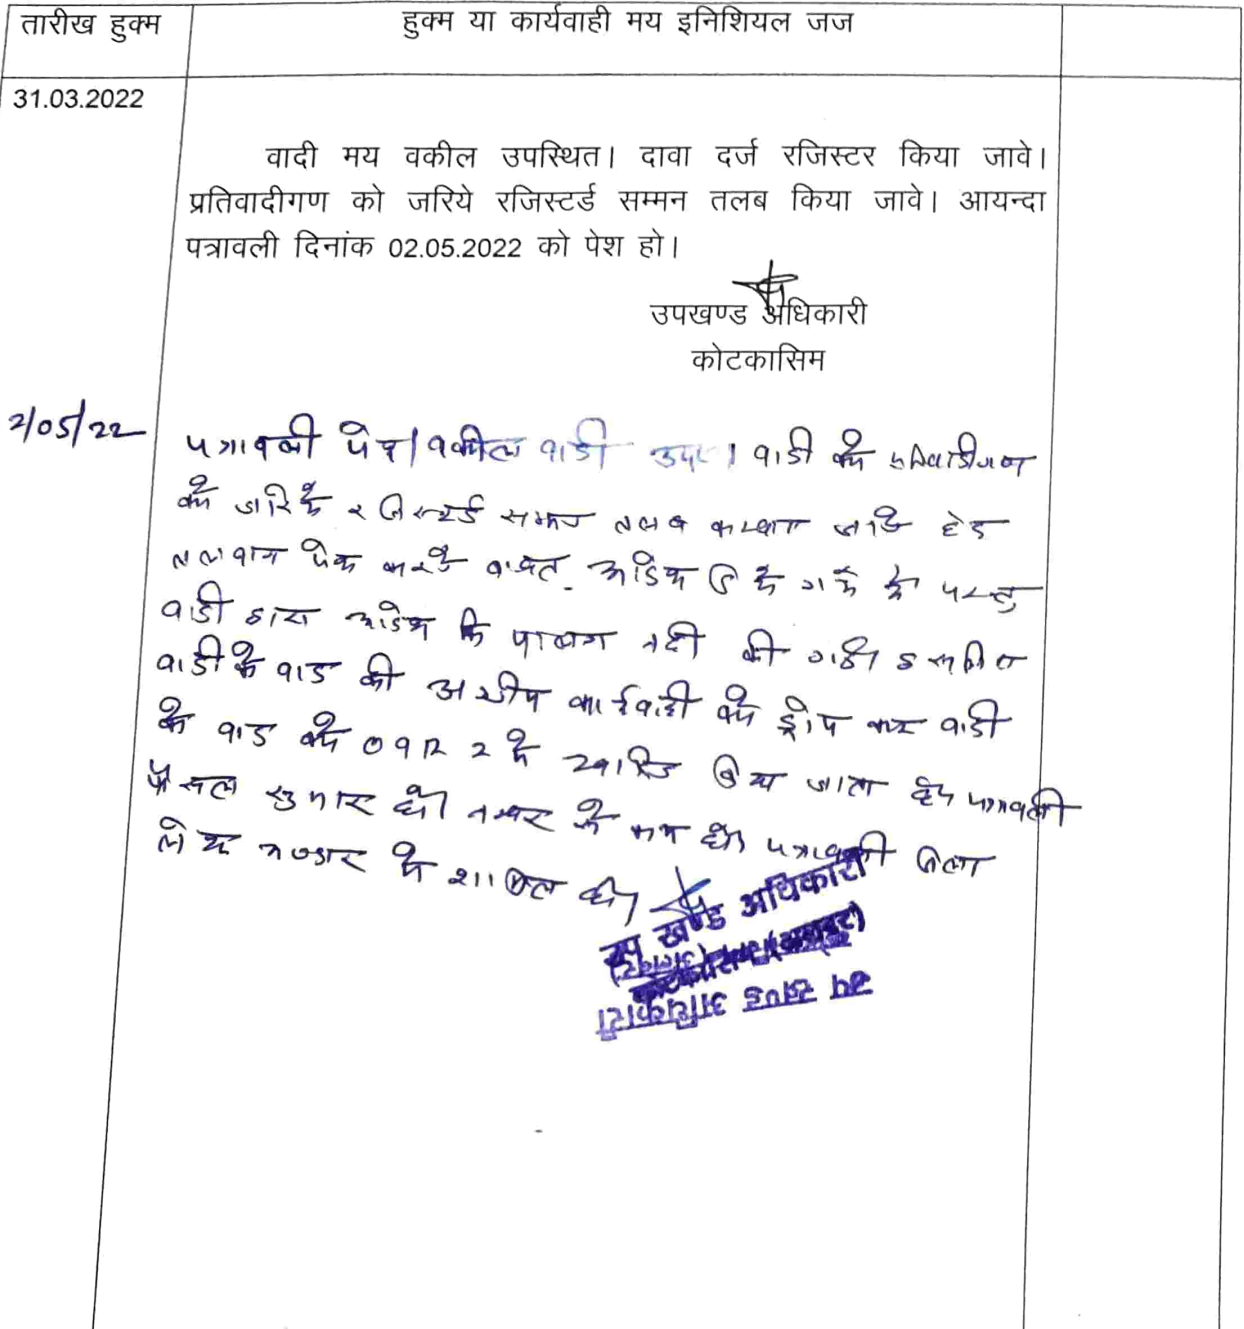 तारीख हुक्म
हुक्म या कार्यवाही मय इनिशियल जज
31.03.2022
वादी मय वकील उपस्थित। दावा दर्ज रजिस्टर किया जावे।
प्रतिवादीगण को जरिये रजिस्टर्ड सम्मन तलब किया जावे। आयन्दा
पत्रावली दिनांक 02.05.2022 को पेश हो।
उपखण्ड अधिकारी
कोटकासिम
2/05/22
पत्रावली पेश। वकील वादी उप०। वादी को प्रतिवादीगण
को जरिये रजिस्टर्ड सम्मन तलब करवाये जाने हेतु
तलवाना पेश करने बाबत आदेश दिये गये थे परन्तु
वादी द्वारा आदेश कि पालना नही की गई। इसलिए
वादी के वाद की अग्रीम कार्यवाही को ड्रोप कर वादी
के वाद को 09 R 2 मे खारिज किया जाता है। पत्रावली
फैसल सुमार हो। नम्बर से कम हो। पत्रावली जिला
लेख भण्डार मे शामिल हो।
उप खण्ड अधिकारी
कोटकासिम (अलवर)
उप खण्ड अधिकारी
(अलवर)